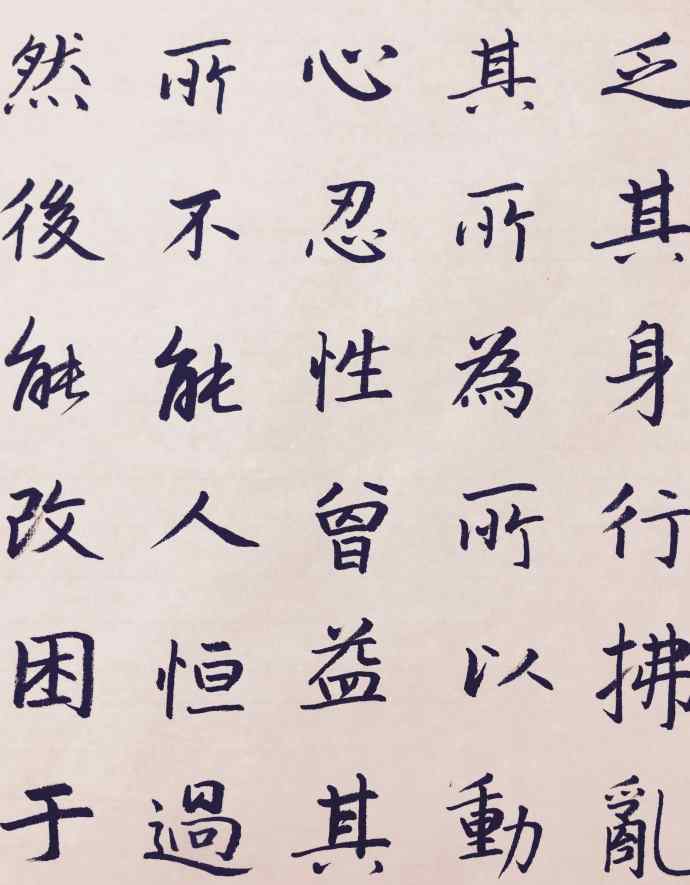 乏其身行拂亂
其所為所以動
心忍性曾益其
所不能人恒過
然後能改困于